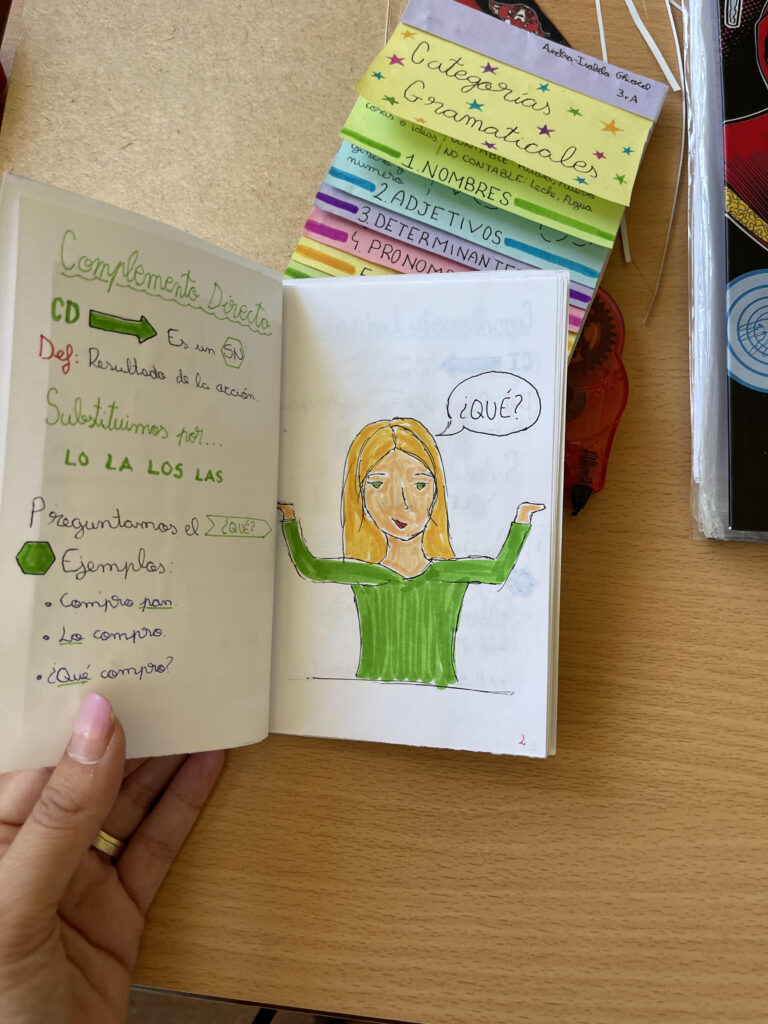 Categorías
Gramaticales
3ºA
cosas o ideas
NO CONTABLE: Leche, Agua
género y
número
1. NOMBRES
2. ADJETIVOS
3. DETERMINANTE
4. PRONOM
Complemento Directo
CD Es un SN
Def: Resultado de la acción.
Substituimos por...
LO LA LOS LAS
Preguntamos el ¿QUÉ?
Ejemplos:
• Compro pan.
• Lo compro.
• ¿Qué compro?
¿QUÉ?